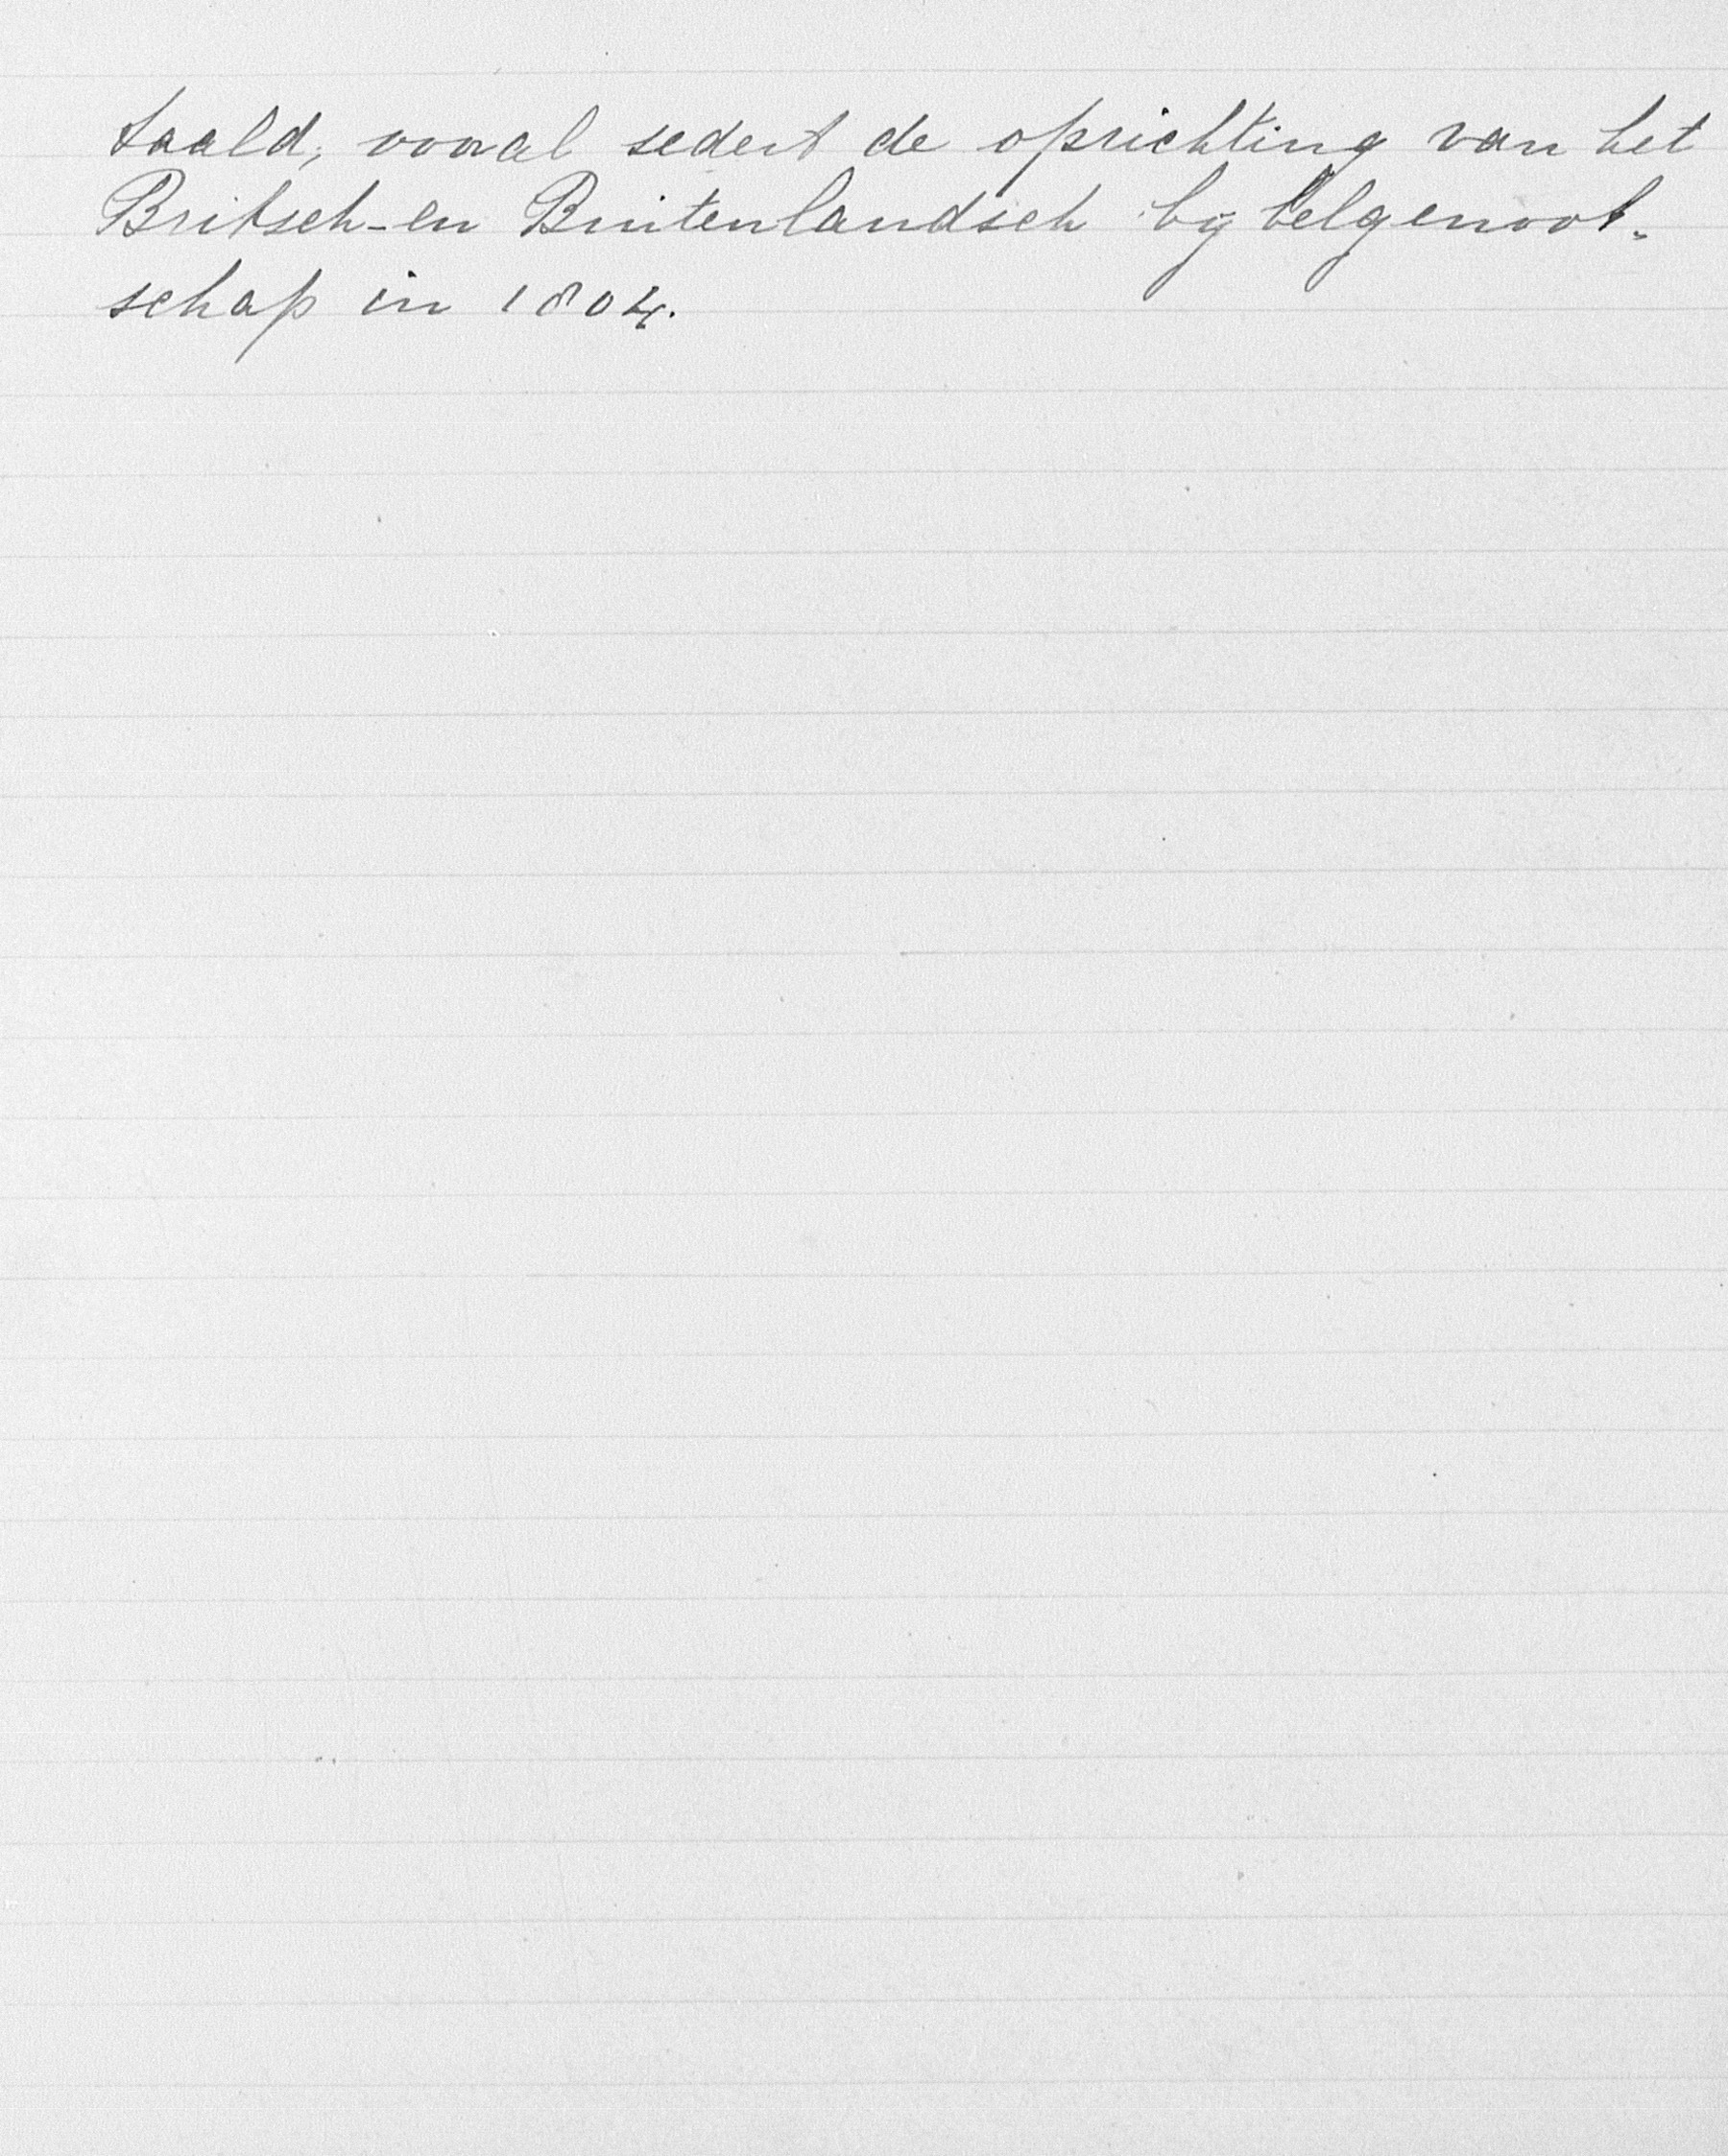 taald, vooral sedert de oprichting van het
Britsch-en Buitenlandsch bijbelgenoot-
schap in 1804.